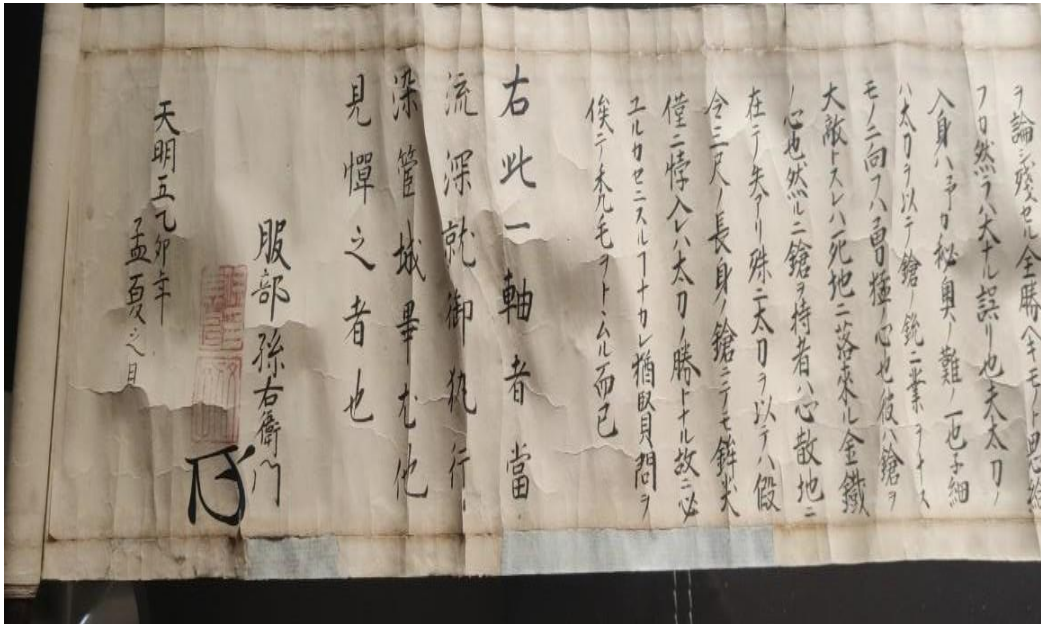 ヲ論シ残セル全勝ヘキモノト思給
フカ然ラハ大ナル誤リ也夫太刀ノ
入身ハ予カ秘奥ノ難ノ一也子細
ハ太刀ヲ以テ鎗ノ鋭ニ業ヲナス
モノニ向フハ勇極ノ心也彼ハ鎗ヲ
大敵トスレハ死地ニ落来ル金鐵
ノ心也然ルニ鎗ヲ持者ハ心散地ニ
在テ失アリ殊ニ太刀ヲ以テハ假
令三尺ノ長身ノ鎗ニテモ鋒尖
僅ニ入レハ太刀ノ勝トナル故ニ必
ユルカセニスルヿナカレ猶賢問ヲ
俟テ禿毛ヲトヽムル而已
右此一軸者當
流深就御執行
染管城畢尤他
見憚之者也
服部孫右衛門
天明五乙卯年
孟夏之日